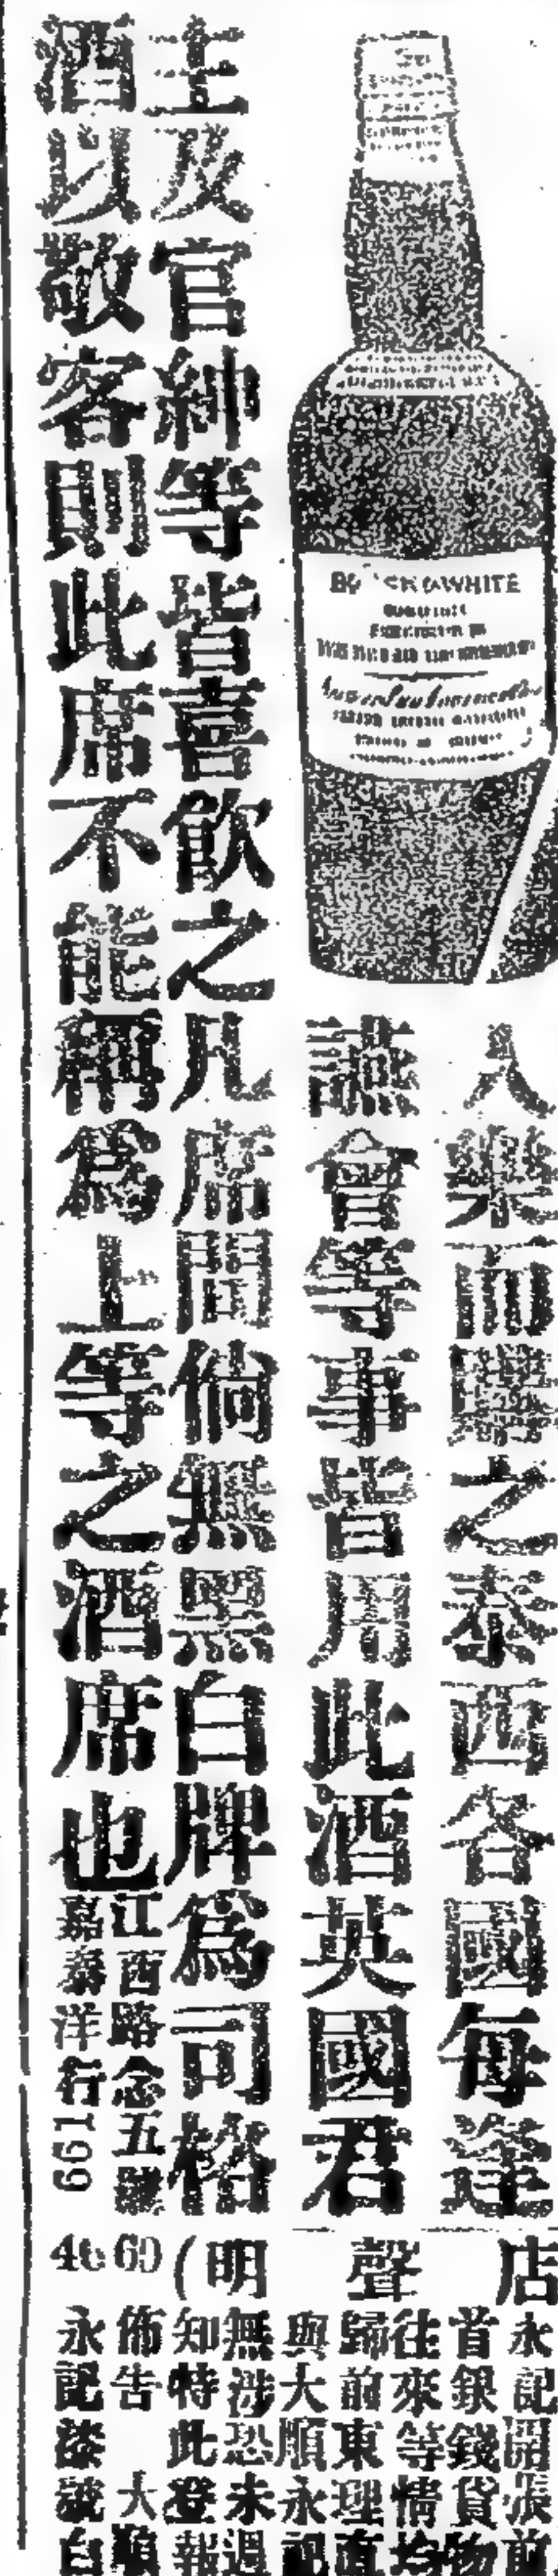 WHITE
人樂而購之泰西各國每逢
讌會等事皆用此酒英國君
主及官紳等皆喜飲之凡席間倘無黑白牌爲司格
酒以敬客則此席不能稱爲上等之酒席也
江西路念五號
嘉泰洋行
661
店
聲
明(
永記開張前
首銀錢貨物
往來等情均
歸前東理直
與大順永記
無涉恐未週
知特此登報
佈告 大順
永記漆號白